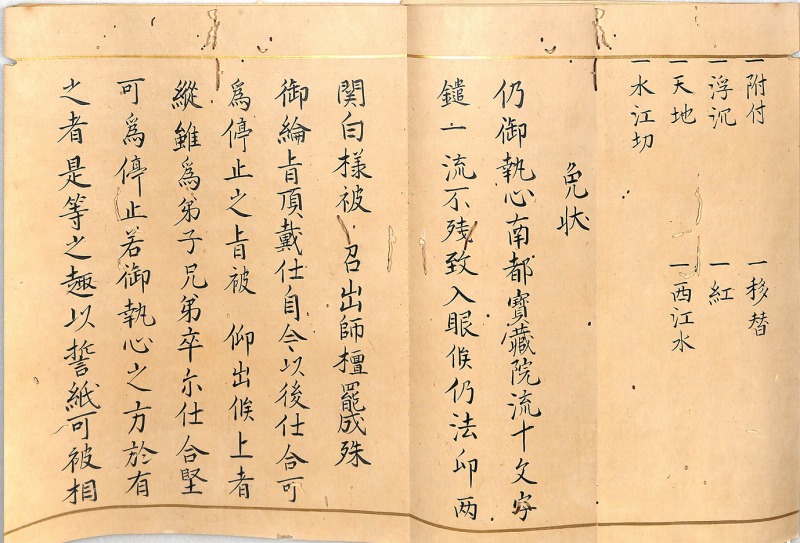 一附付　一移替
一浮沉　一紅
一天地　一西江水
一水江切
免状
仍御執心南都寶蔵院流十文字
鑓一流不残致入眼候仍法印両
関白様被　召出師檀罷成殊
御綸旨頂戴仕自今以後仕合可
為停止之旨被　仰出候上者
縦雖為弟子兄弟卒尓仕合堅
可為停止若御執心之方於有
之者是等之趣以誓紙可被相